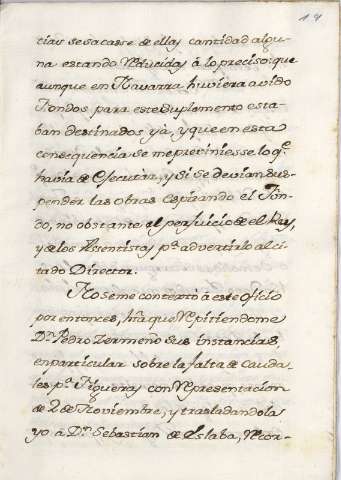 19
cias se sacasse de ellas cantidad algu-
na estando reducidas à lo preciso: que
aunque en Navarra huviera avido
Fondos para este Suplemento esta-
ban destinados yà, y que en esta
consequencia se me previniesse lo q.e
havia de Executar, y Si Se devian sus-
pender las obras Espirando el Fon-
do, no obstante el perjuicio de el Rey,
y de los Assentistas p.a advertirlo al ci-
tado Director.
No se me contextò à este Oficio
por entonces, h.ta que repitiendome
D.n Pedro Zermeño sus instancias,
en particular sobre la falta de Cauda-
les p.a Figueras con representacion
de 2 de Noviembre, y trasladandola
yo à D.n Sebastian de Eslaba, recor-